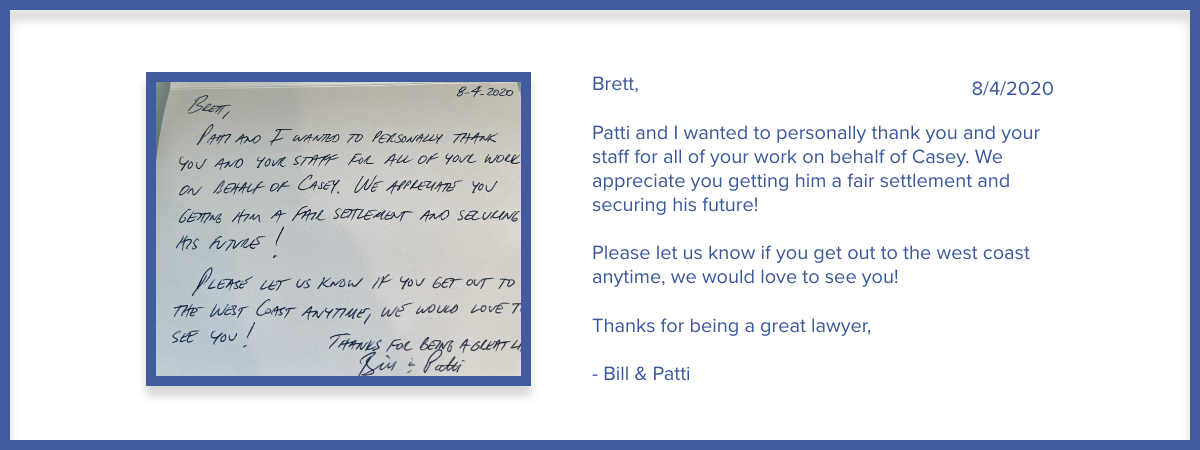 8-4-2020
Brett,
Patti and I wanted to personally thank
you and your staff for all of your work
on behalf of Casey. We appreciate you
getting him a fair settlement and securing
his future!
Please let us know if you get out to
the West Coast anytime, we would love t
see you!
Thanks for being a great
Bill & Patti
Brett,
8/4/2020
Patti and I wanted to personally thank you and your
staff for all of your work on behalf of Casey. We
appreciate you getting him a fair settlement and
securing his future!
Please let us know if you get out to the west coast
anytime, we would love to see you!
Thanks for being a great lawyer,
- Bill & Patti